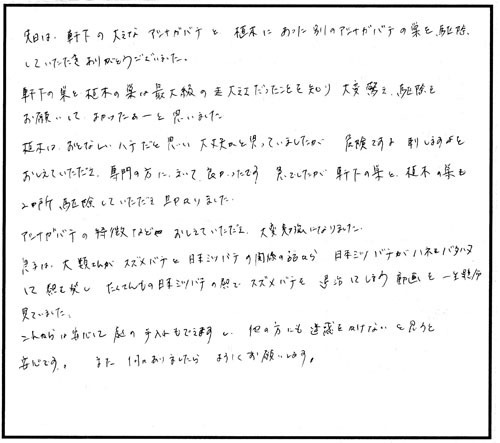 先日は、軒下の大きなアシナガバチと 植木にあった別のアシナガバチの巣を、駆除
していただきありがとうございました。
軒下の巣と植木の巣は最大級の大きさだったことを知り 大変驚き、駆除を
お願いして よかったぁーと思いました
植木は、おとなしいハチだと思い大丈夫かと思っていましたが 危険ですよ 刺しますよと
おしえていただき、専門の方に、きいて良かったです 急でしたが 軒下の巣と、植木の巣も
2か所 駆除していただき 助かりました。
アシナガバチの特徴など おしえていただき、大変勉強になりました。
息子は、大類さんが スズメバチと日本ミツバチの関係の話から 日本ミツバチがハネをバタバタ
して 熱を発し たくさんの日本ミツバチの熱で スズメバチを 退治にしよう 動画を 一生懸命
見ていました。
これからは安心して 庭の手入れもできますし、他の方にも 迷惑をかけないと思うと
安心です。 また 何かありましたら よろしくお願いします。